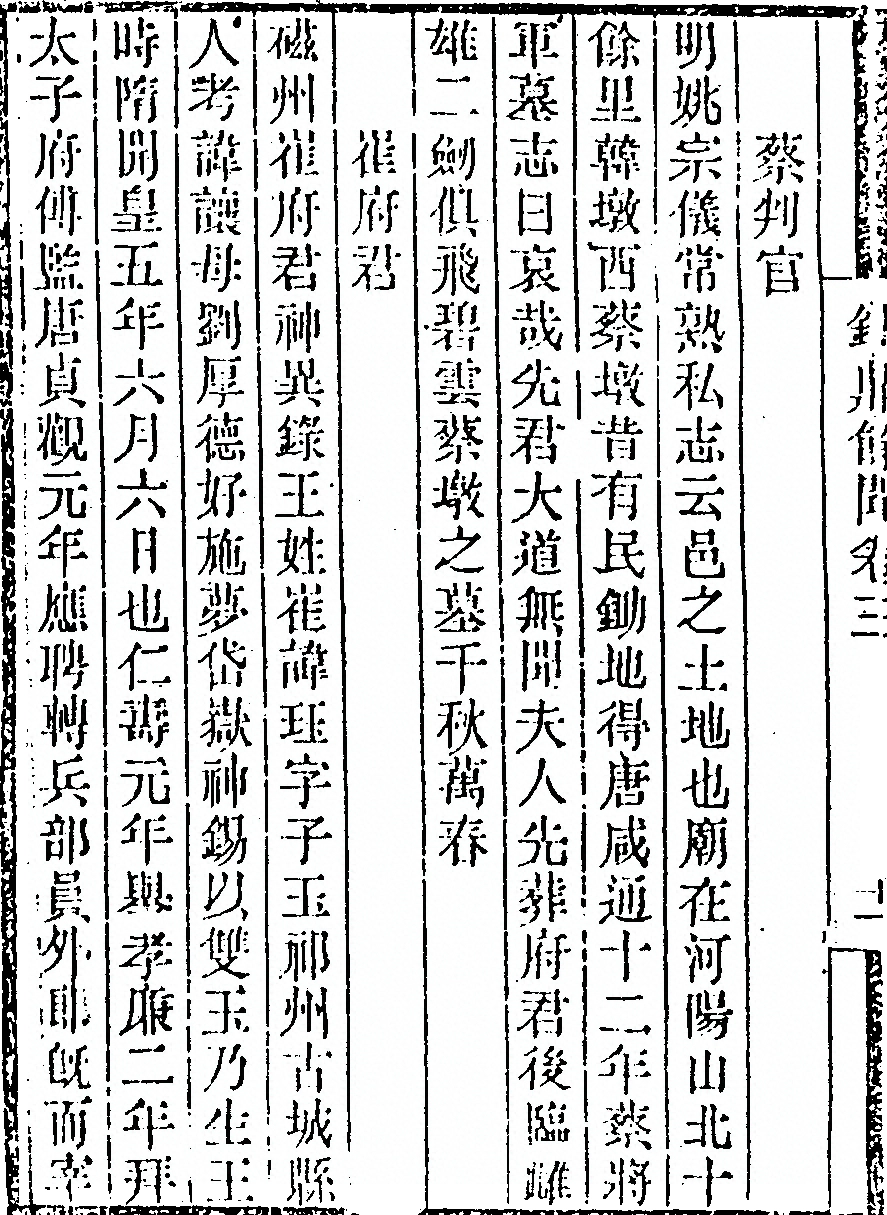 鑄鼎餘聞卷三
蔡判官
明姚宗儀常熟私志云邑之土地也廟在河陽山北十
餘里韓墩西蔡墩昔有民鋤地得唐咸通十二年蔡將
軍墓志曰哀哉先君大道無聞夫人先葬府君後臨雌
雄二劍俱飛碧雲蔡墩之墓千秋萬春
崔府君
磁州崔府君神異錄王姓崔諱珏字子玉祁州古城縣
人考諱讓母劉厚德好施夢岱嶽神錫以雙玉乃生王
時隋開皇五年六月六日也仁壽元年舉孝廉二年拜
太子府傅監唐貞觀元年應聘轉兵部員外郎旣而宰